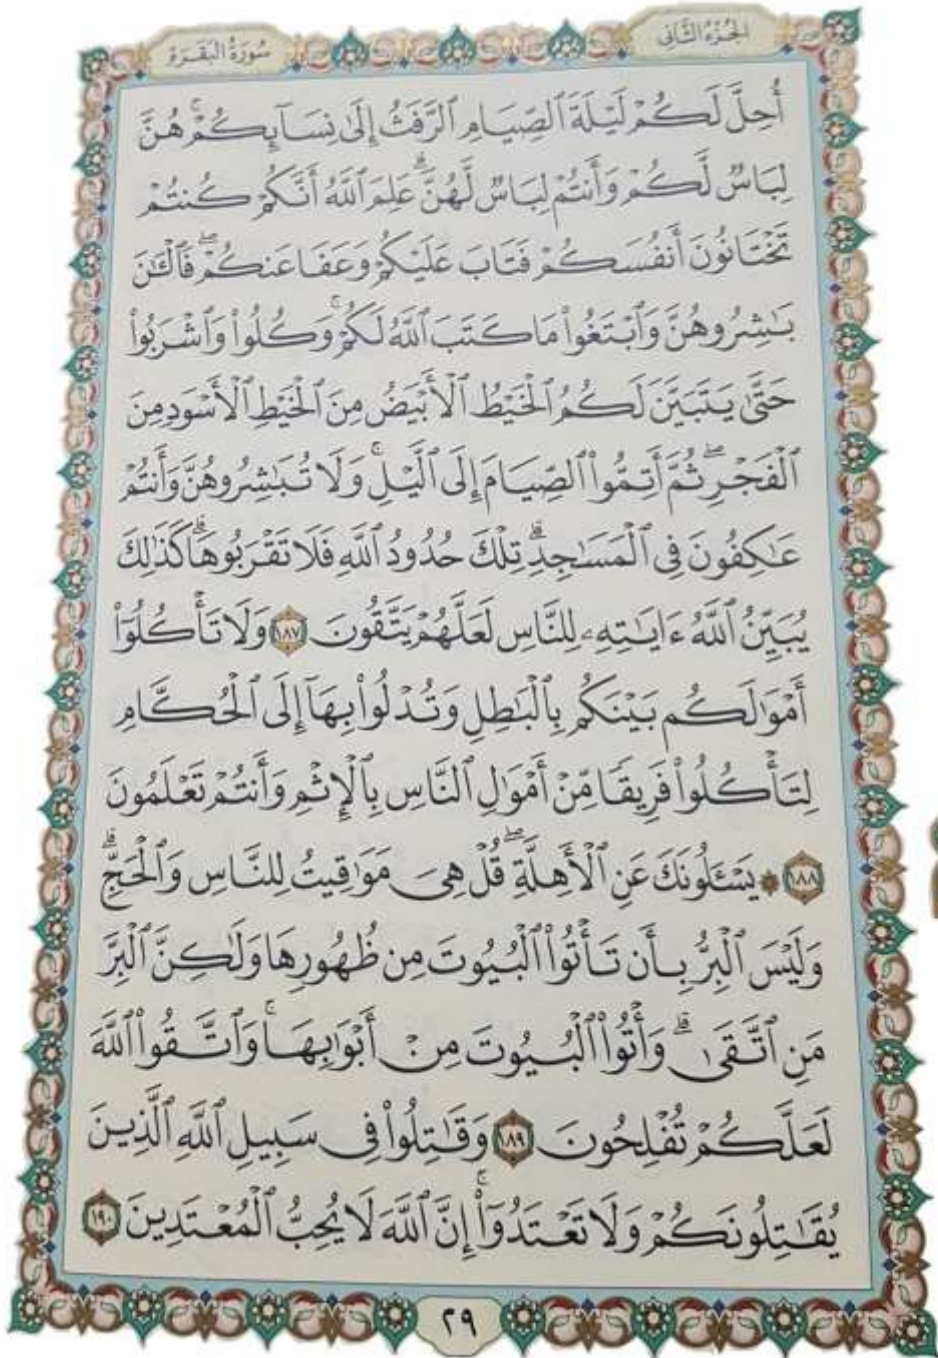 سُورَةُ الْبَقَرَةِ
الجُزْءُ الثَّانِى
أُحِلَّ لَكُمْ لَيْلَةَ ٱلصِّيَامِ ٱلرَّفَثُ إِلَىٰ نِسَآئِكُمْۚ هُنَّ
لِبَاسٌ لَّكُمْ وَأَنتُمْ لِبَاسٌ لَّهُنَّۗ عَلِمَ ٱللَّهُ أَنَّكُمْ كُنتُمْ
تَخْتَانُونَ أَنفُسَكُمْ فَتَابَ عَلَيْكُمْ وَعَفَا عَنكُمْۖ فَٱلْـَٰٔنَ
بَـٰشِرُوهُنَّ وَٱبْتَغُوا۟ مَا كَتَبَ ٱللَّهُ لَكُمْۚ وَكُلُوا۟ وَٱشْرَبُوا۟
حَتَّىٰ يَتَبَيَّنَ لَكُمُ ٱلْخَيْطُ ٱلْأَبْيَضُ مِنَ ٱلْخَيْطِ ٱلْأَسْوَدِ مِنَ
ٱلْفَجْرِۖ ثُمَّ أَتِمُّوا۟ ٱلصِّيَامَ إِلَى ٱلَّيْلِۚ وَلَا تُبَـٰشِرُوهُنَّ وَأَنتُمْ
عَـٰكِفُونَ فِى ٱلْمَسَـٰجِدِۗ تِلْكَ حُدُودُ ٱللَّهِ فَلَا تَقْرَبُوهَاۗ كَذَٰلِكَ
يُبَيِّنُ ٱللَّهُ ءَايَـٰتِهِۦ لِلنَّاسِ لَعَلَّهُمْ يَتَّقُونَ ١٨٧ وَلَا تَأْكُلُوٓا۟
أَمْوَٰلَكُم بَيْنَكُم بِٱلْبَـٰطِلِ وَتُدْلُوا۟ بِهَآ إِلَى ٱلْحُكَّامِ
لِتَأْكُلُوا۟ فَرِيقًا مِّنْ أَمْوَٰلِ ٱلنَّاسِ بِٱلْإِثْمِ وَأَنتُمْ تَعْلَمُونَ
١٨٨ ۞ يَسْـَٔلُونَكَ عَنِ ٱلْأَهِلَّةِۖ قُلْ هِىَ مَوَٰقِيتُ لِلنَّاسِ وَٱلْحَجِّۗ
وَلَيْسَ ٱلْبِرُّ بِأَن تَأْتُوا۟ ٱلْبُيُوتَ مِن ظُهُورِهَا وَلَـٰكِنَّ ٱلْبِرَّ
مَنِ ٱتَّقَىٰۗ وَأْتُوا۟ ٱلْبُيُوتَ مِنْ أَبْوَٰبِهَاۚ وَٱتَّقُوا۟ ٱللَّهَ
لَعَلَّكُمْ تُفْلِحُونَ ١٨٩ وَقَـٰتِلُوا۟ فِى سَبِيلِ ٱللَّهِ ٱلَّذِينَ
يُقَـٰتِلُونَكُمْ وَلَا تَعْتَدُوٓا۟ۚ إِنَّ ٱللَّهَ لَا يُحِبُّ ٱلْمُعْتَدِينَ ١٩٠
٢٩